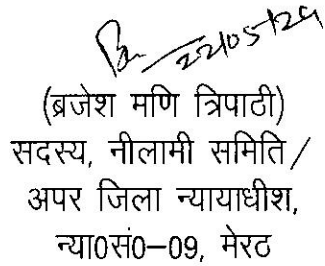 22/05/29
(ब्रजेश मणि त्रिपाठी)
सदस्य, नीलामी समिति/
अपर जिला न्यायाधीश,
न्या0सं0–09, मेरठ